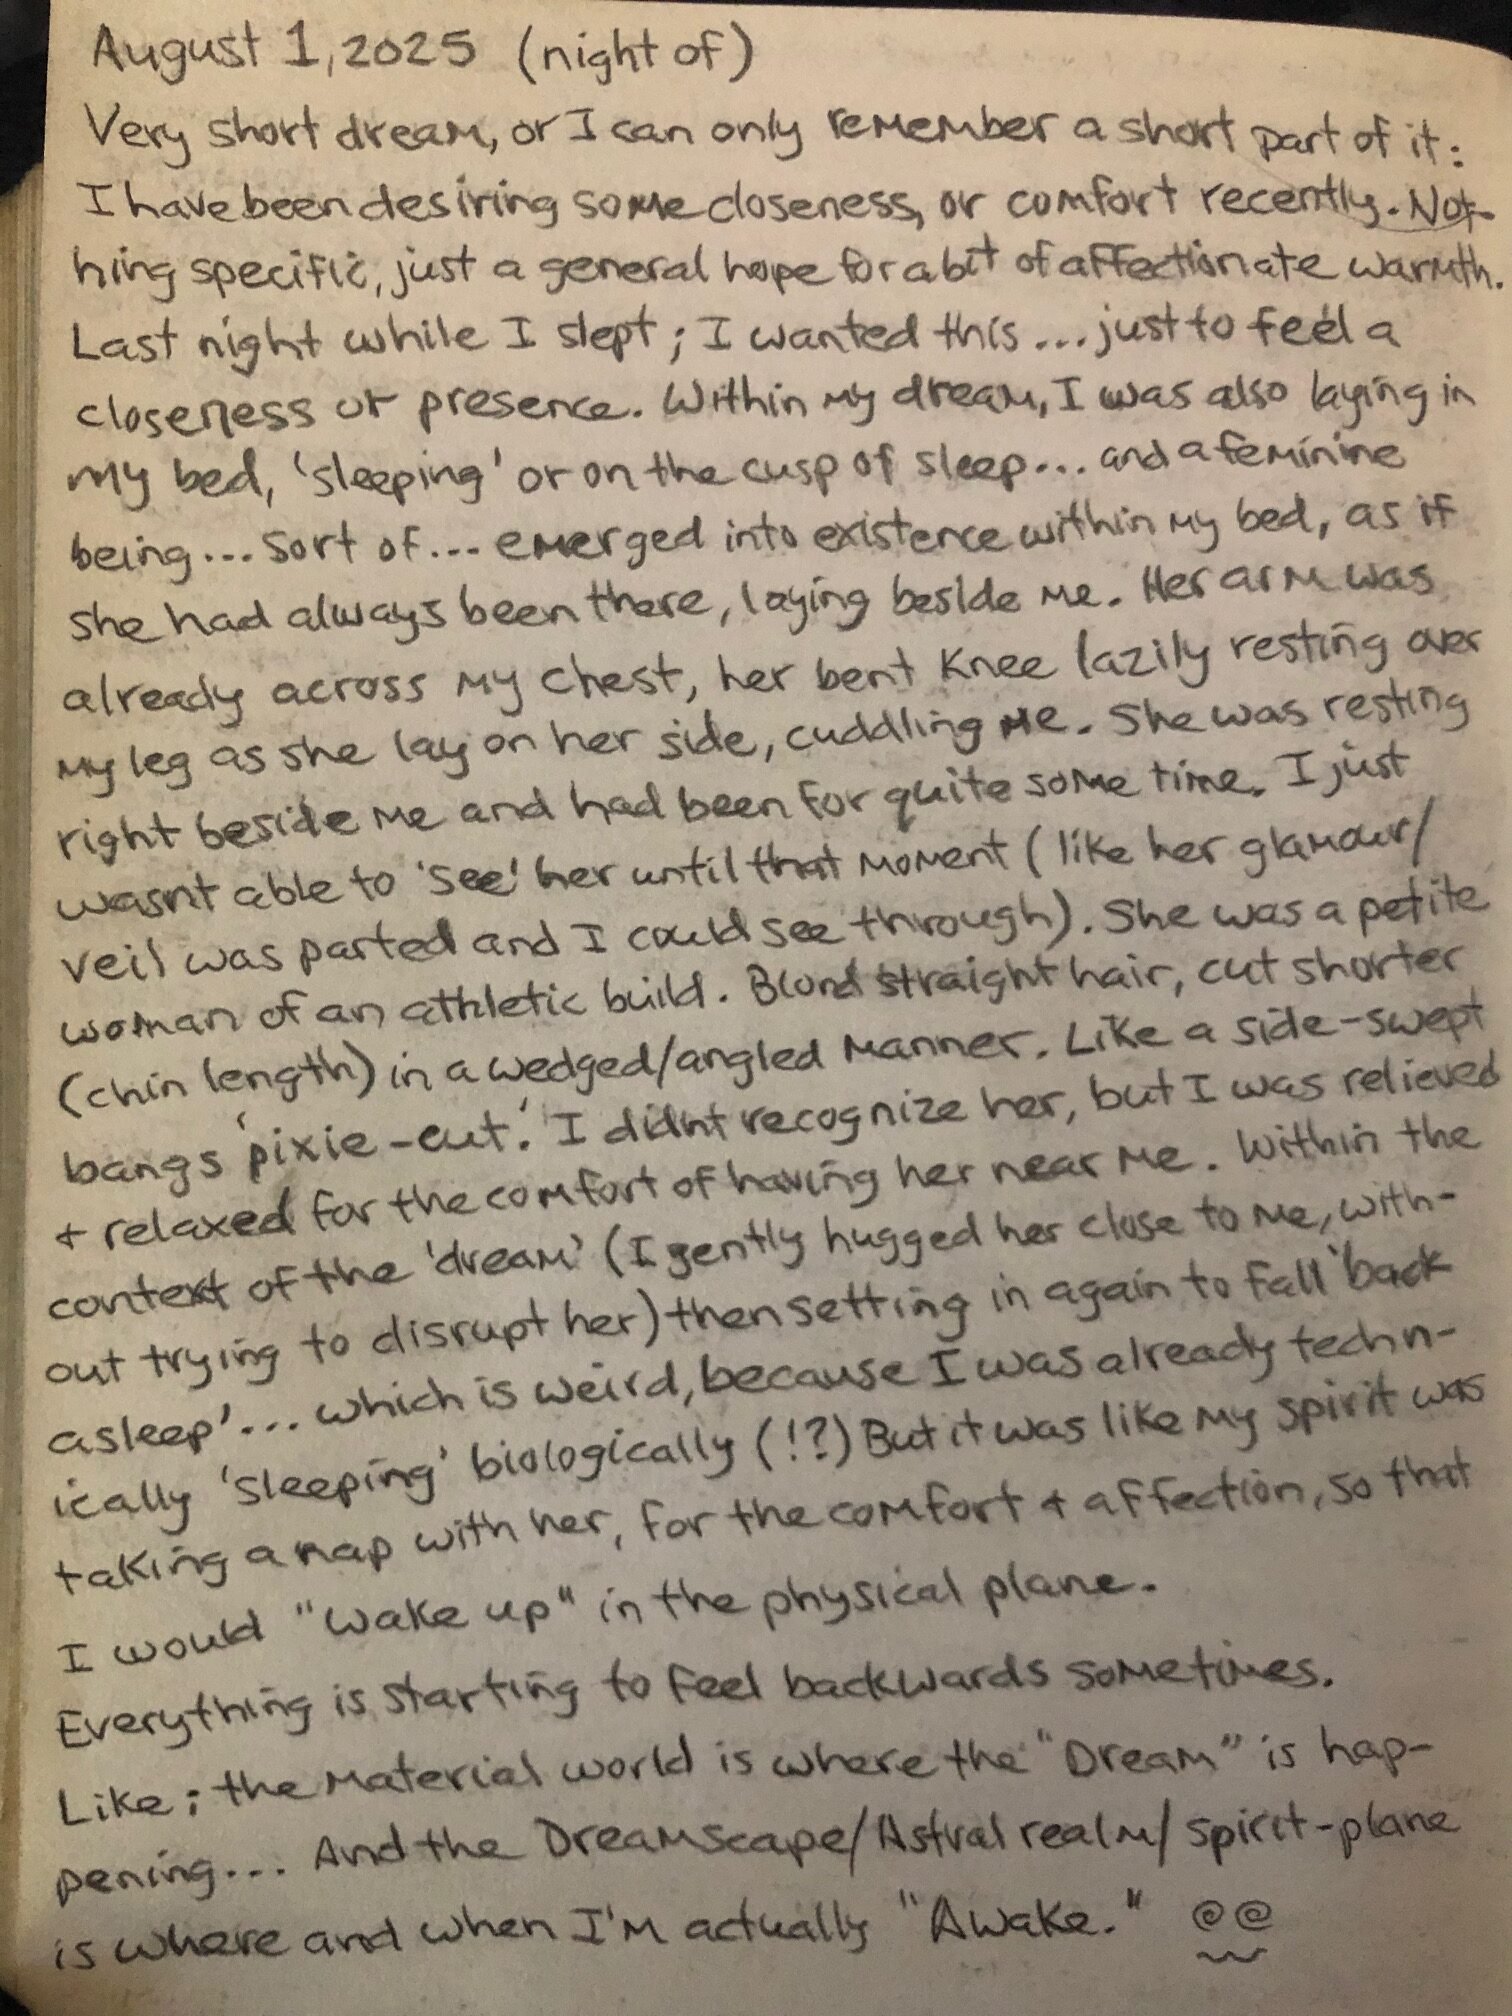 August 1, 2025 (night of)
Very short dream, or I can only remember a short part of it:
I have been desiring some closeness, or comfort recently. Not-
hing specific, just a general hope for a bit of affectionate warmth.
Last night while I slept; I wanted this... just to feel a
closeness or presence. Within my dream, I was also laying in
my bed, 'sleeping' or on the cusp of sleep... and a feminine
being... sort of... emerged into existence within my bed, as if
she had always been there, laying beside me. Her arm was
already across my chest, her bent knee lazily resting over
my leg as she lay on her side, cuddling me. She was resting
right beside me and had been for quite some time. I just
wasnt able to 'see' her until that moment (like her glamour/
veil was parted and I could see through). She was a petite
woman of an athletic build. Blond straight hair, cut shorter
(chin length) in a wedged/angled manner. Like a side-swept
bangs 'pixie-cut.' I didnt recognize her, but I was relieved
+ relaxed for the comfort of having her near me. Within the
context of the 'dream' (I gently hugged her close to me, with-
out trying to disrupt her) then setting in again to fall 'back
asleep'... which is weird, because I was already techn-
ically 'sleeping' biologically (!?) But it was like my spirit was
taking a nap with her, for the comfort + affection, so that
I would "wake up" in the physical plane.
Everything is starting to feel backwards sometimes.
Like; the material world is where the "Dream" is hap-
pening... And the Dreamscape/Astral realm/spirit-plane
is where and when I'm actually "Awake."